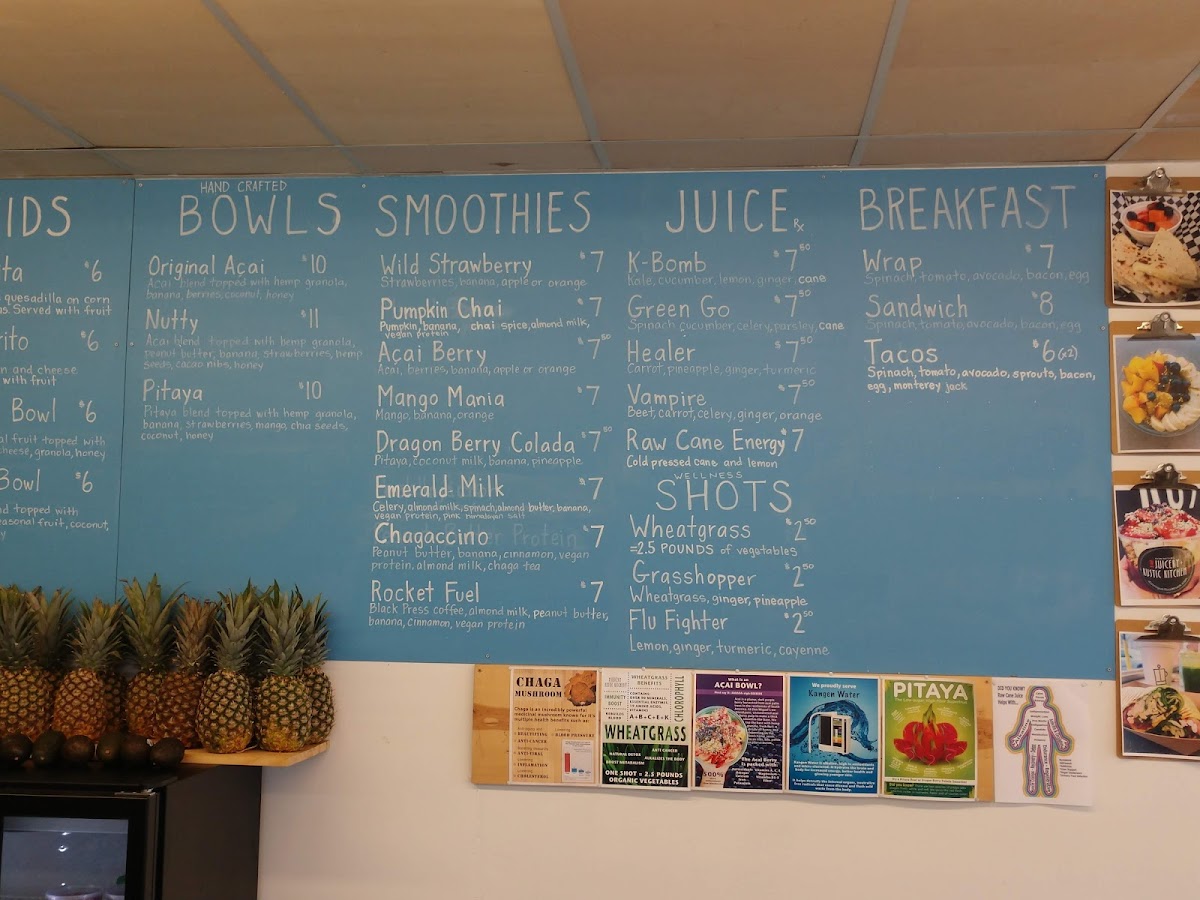 IDS
ta $6
quesadilla on corn
s. Served with fruit
rito $6
n and cheese
with fruit
Bowl $6
al fruit topped with
cheese, granola, honey
Bowl $6
nd topped with
easonal fruit, coconut,
y
HAND CRAFTED
BOWLS
Original Acai $10
Acai blend topped with hemp granola,
banana, berries, coconut, honey
Nutty $11
Acai blend topped with hemp granola,
peanut butter, banana, strawberries, hemp
seeds, cacao nibs, honey
Pitaya $10
Pitaya blend topped with hemp granola,
banana, strawberries, mango, chia seeds,
coconut, honey
SMOOTHIES
Wild Strawberry $7
Strawberries, banana, apple or orange
Pumpkin Chai $7
Pumpkin, banana, chai spice, almond milk,
vegan protein
Açai Berry $7.50
Acai, berries, banana, apple or orange
Mango Mania $7
Mango, banana, orange
Dragon Berry Colada $7.50
Pitaya, coconut milk, banana, pineapple
Emerald Milk $7
Celery, almond milk, spinach, almond butter, banana,
vegan protein, pink himalayan salt
Chagaccino $7
Peanut butter, banana, cinnamon, vegan
protein, almond milk, chaga tea
Rocket Fuel $7
Black Press coffee, almond milk, peanut butter,
banana, cinnamon, vegan protein
JUICE Rx
K-Bomb $7.50
Kale, cucumber, lemon, ginger, cane
Green Go $7.50
Spinach cucumber, celery, parsley, cane
Healer $7.50
Carrot, pineapple, ginger, turmeric
Vampire $7.50
Beet, carrot, celery, ginger, orange
Raw Cane Energy $7
Cold pressed cane and lemon
WELLNESS
SHOTS
Wheatgrass $2.50
=2.5 POUNDS of vegetables
Grasshopper $2.50
Wheatgrass, ginger, pineapple
Flu Fighter $2.50
Lemon, ginger, turmeric, cayenne
BREAKFAST
Wrap $7
Spinach, tomato, avocado, bacon, egg
Sandwich $8
Spinach, tomato, avocado, bacon, egg
Tacos $6 (x2)
Spinach, tomato, avocado, sprouts, bacon,
egg, monterey jack
CHAGA
MUSHROOM
Chaga is an incredibly powerful
medicinal mushroom known for it's
multiple health benefits such as:
WHEATGRASS
BENEFITS
IMMUNITY
BOOST
A+B+C+E+K
CHLOROPHYLL
WHEATGRASS
NATURAL DETOX
ANTI CANCER
BOOST METABOLISM
ALKALIZES THE BODY
ONE SHOT = 2.5 POUNDS
ORGANIC VEGETABLES
What is an
ACAI BOWL?
The Acai Berry
is packed with:
We proudly serve
Kangen Water
PITAYA
DID YOU KNOW?
Raw Cane Juice
Helps With...
JUICERY
RUSTIC KITCHEN